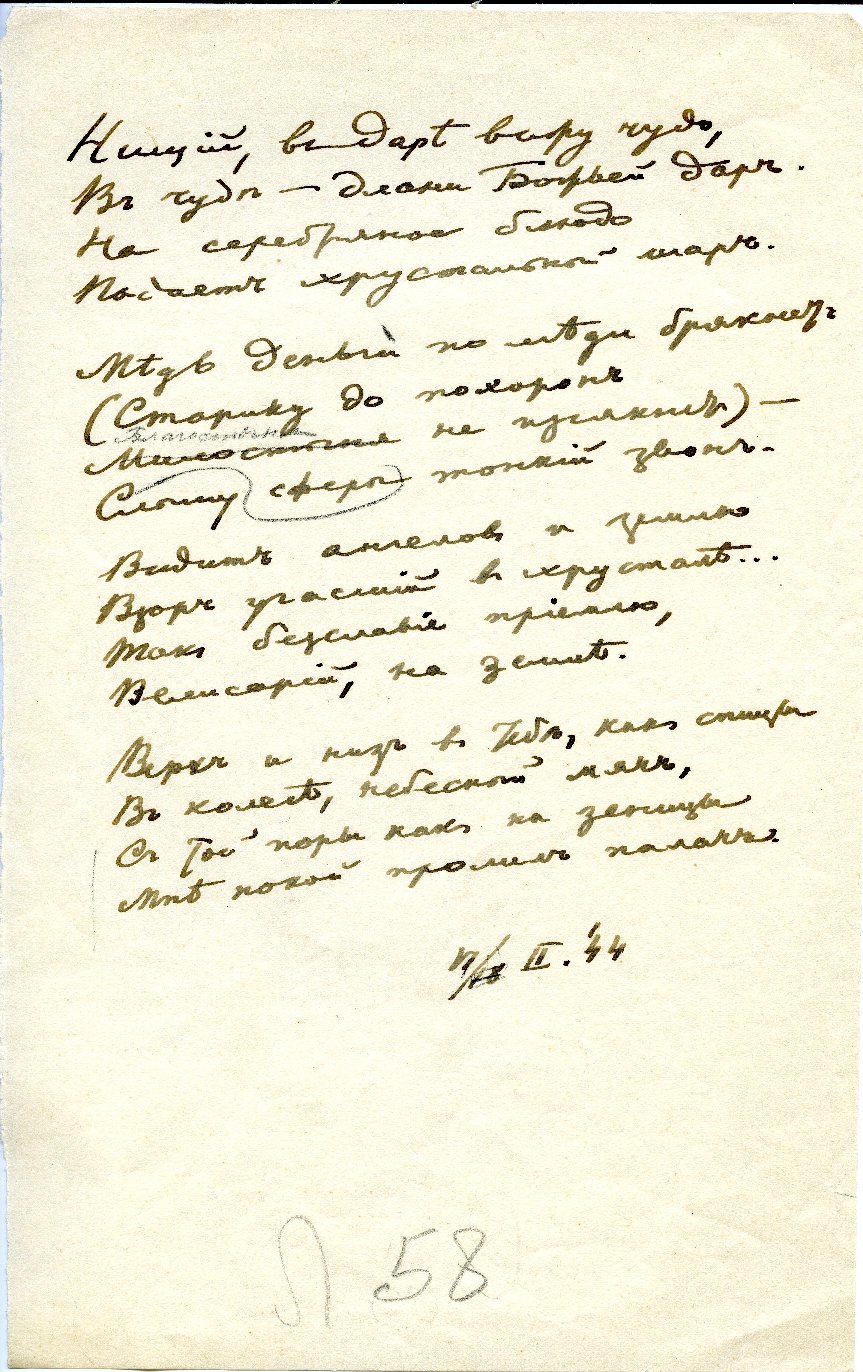 Нищій, въ дарѣ вижу чудо,
Въ чудѣ — длани Божьей даръ.
На серебряное блюдо
Падаетъ хрустальный шаръ.
Мѣдь деньги по мѣди брякнетъ
(Старику до похоронъ
Благостыня
Милостыня не изсякнетъ) —
Слышу сферы тонкій звонъ.
Видитъ ангеловъ и землю
Взоръ угасшій въ хрусталѣ...
Такъ безславіе пріемлю,
Велисарій, на землѣ.
Верхъ и низъ въ тебѣ, какъ спицы
Въ колесѣ, небесный мячъ,
Съ той поры какъ на зеницы
Мнѣ покой пролилъ палачъ.
17/18 II. '44
Л 58